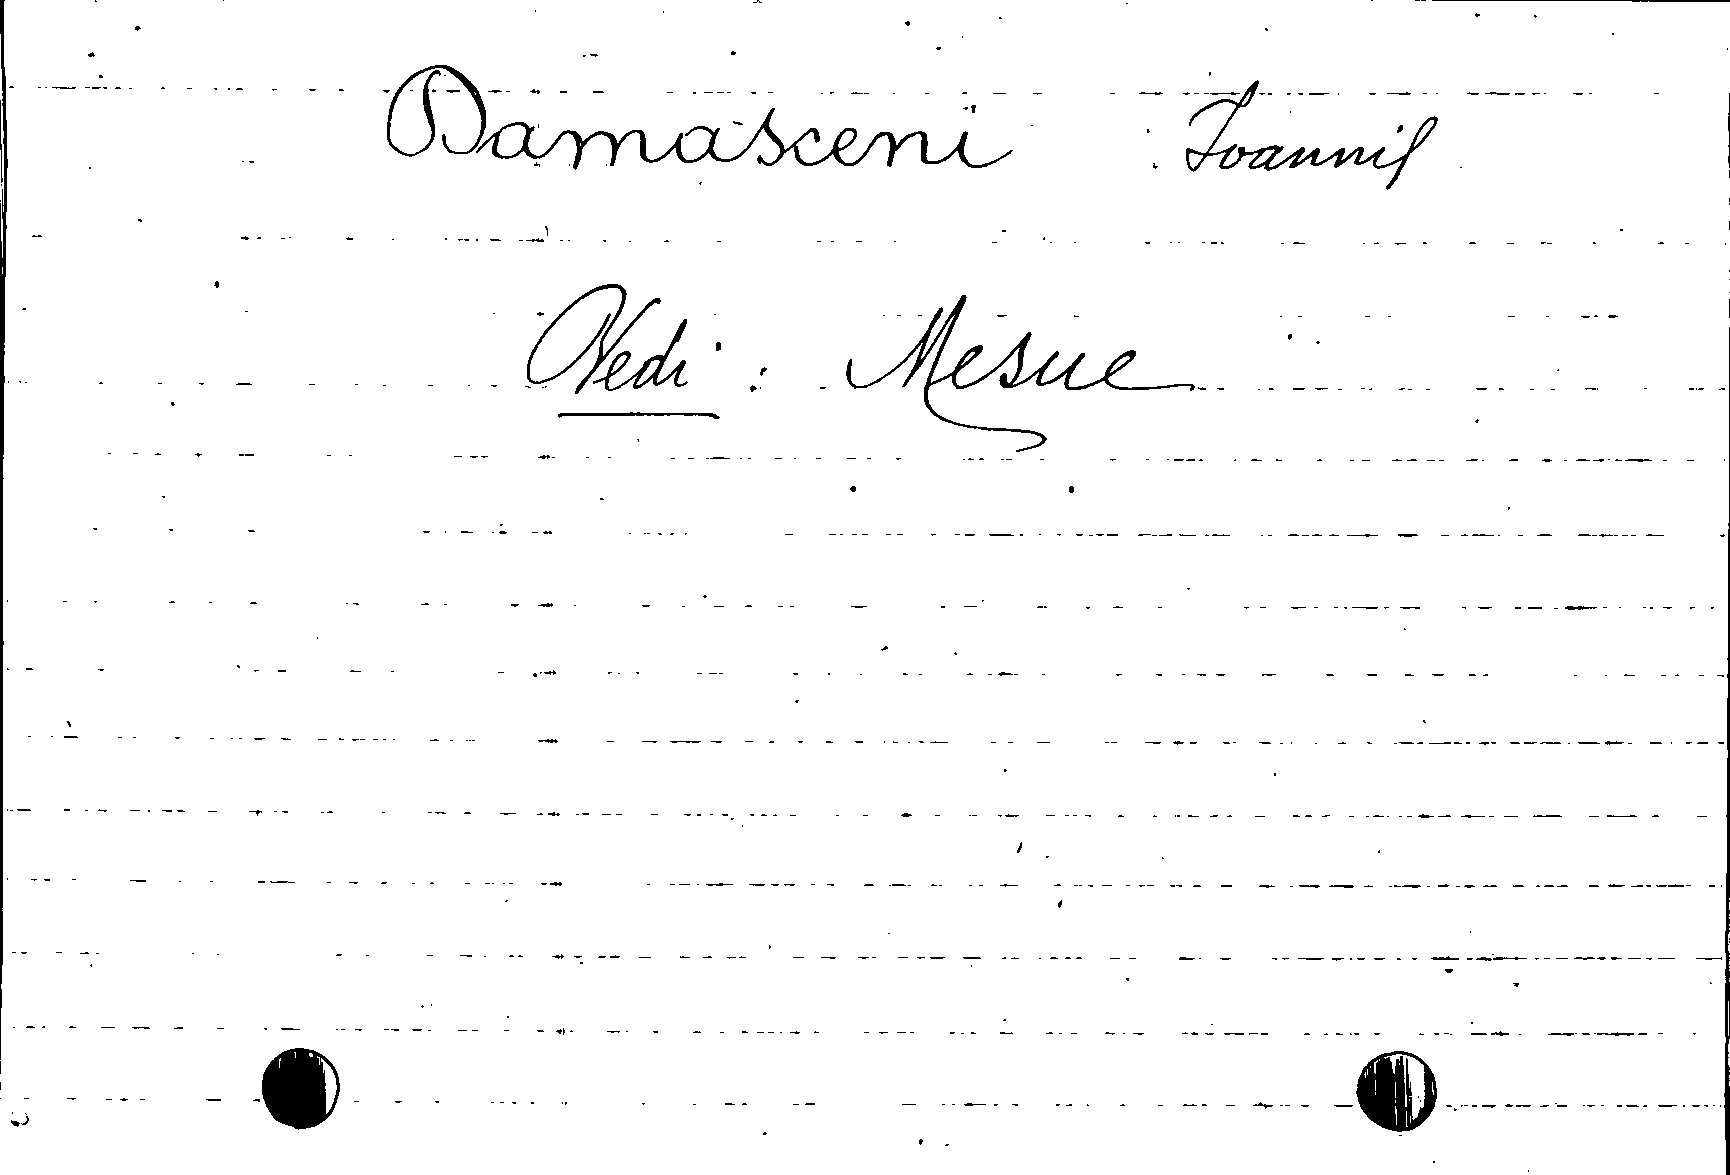 Damasceni Joannis
Vedi : Mesue